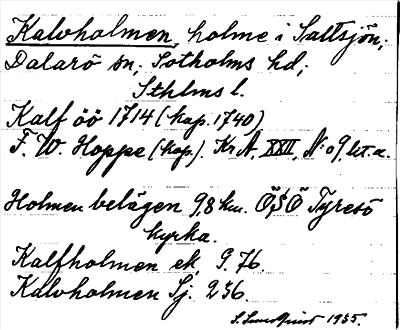 Kalvholmen, holme i Saltsjön;
Dalarö sn; Sotholms hd;
Sthlms l.
Kalf öö 1714 (kap. 1740)
F. W. Hoppe (kop.). Kr A. XXII, No 9 lit. a.
Holmen belägen 9,8 km. ÖSÖ Tyresö
kyrka.
Kalfholmen ek 9. 76.
Kalvholmen Sj. 236.
S. Lundquist 1935.